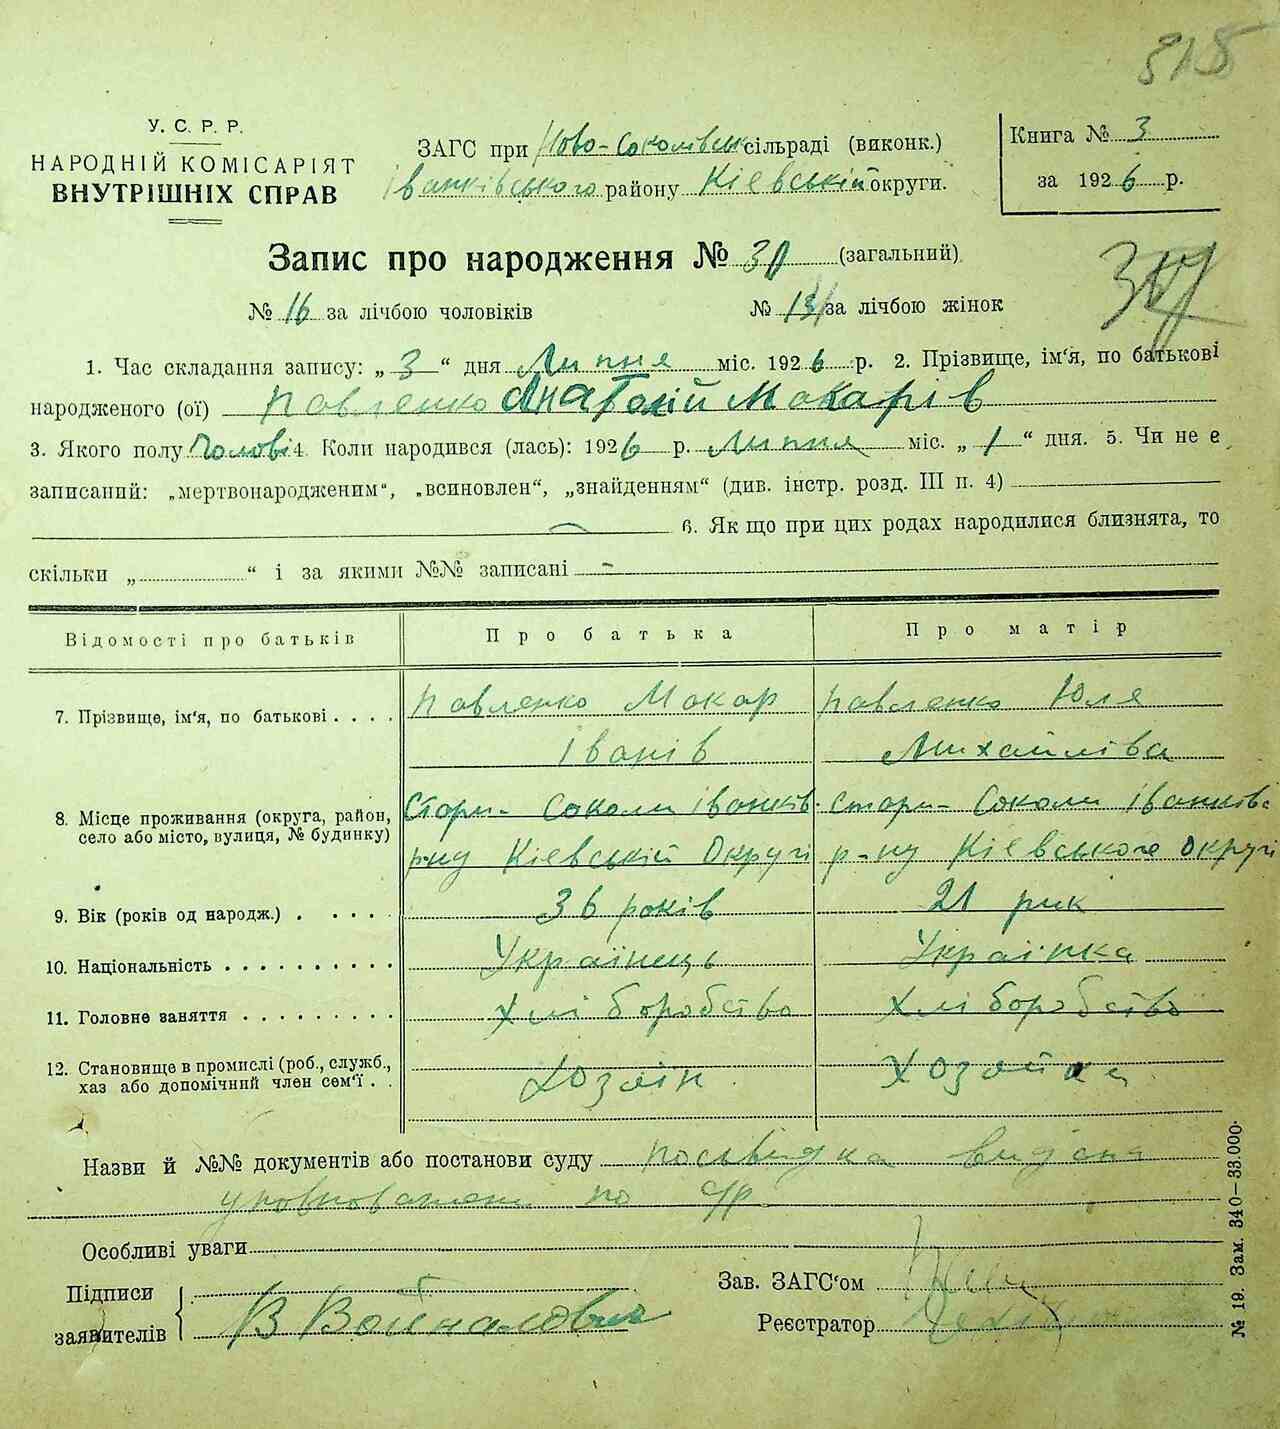 315
У. С. Р. Р.
НАРОДНІЙ КОМІСАРІЯТ
ВНУТРІШНІХ СПРАВ
ЗАГС при Ново-Соколівськ сільраді (виконк.)
Іванківського району Кіевській округи.
Книга № 3
за 1926 р.
Запис про народження № 30 (загальний)
№ 16 за лічбою чоловіків № 13 за лічбою жінок
1. Час складання запису: „3“ дня Липня міс. 1926 р. 2. Прізвище, ім‘я, по батькові
народженого (ої) Павленко Анатолій Макарів
3. Якого полу Чолові 4. Коли народився (лась): 1926 р. Липня міс. „1“ дня. 5. Чи не є
записаний: „мертвонародженим“, „всиновлен“, „знайденням“ (див. інстр. розд. III п. 4)
6. Як що при цих родах народилися близнята, то
скільки „ “ і за якими №№ записані -
Відомості про батьків Про батька Про матір
7. Прізвище, ім‘я, по батькові Павленко Макар Павленко Юля
Іванів Михайліва
8. Місце проживання (округа, район, Стари- Соколи Іванків. Стари- Соколи Іванківс
село або місто, вулиця, № будинку) р-ну Кіевській Округі р-ну Кіевського Округі
9. Вік (років од народж.) 36 років 21 рик
10. Національність Українець Українка
11. Головне заняття Хліборобство Хліборобство
12. Становище в промислі (роб., служб., Хозяїн Хозяйка
хаз або допомічний член сем‘ї
Назви й №№ документів або постанови суду посьвидка видана
по с/р
Особливі уваги
Підписи
заявителів В Войналович
Зав. ЗАГС‘ом
Реєстратор
№ 19. Зам. 340—33.000.